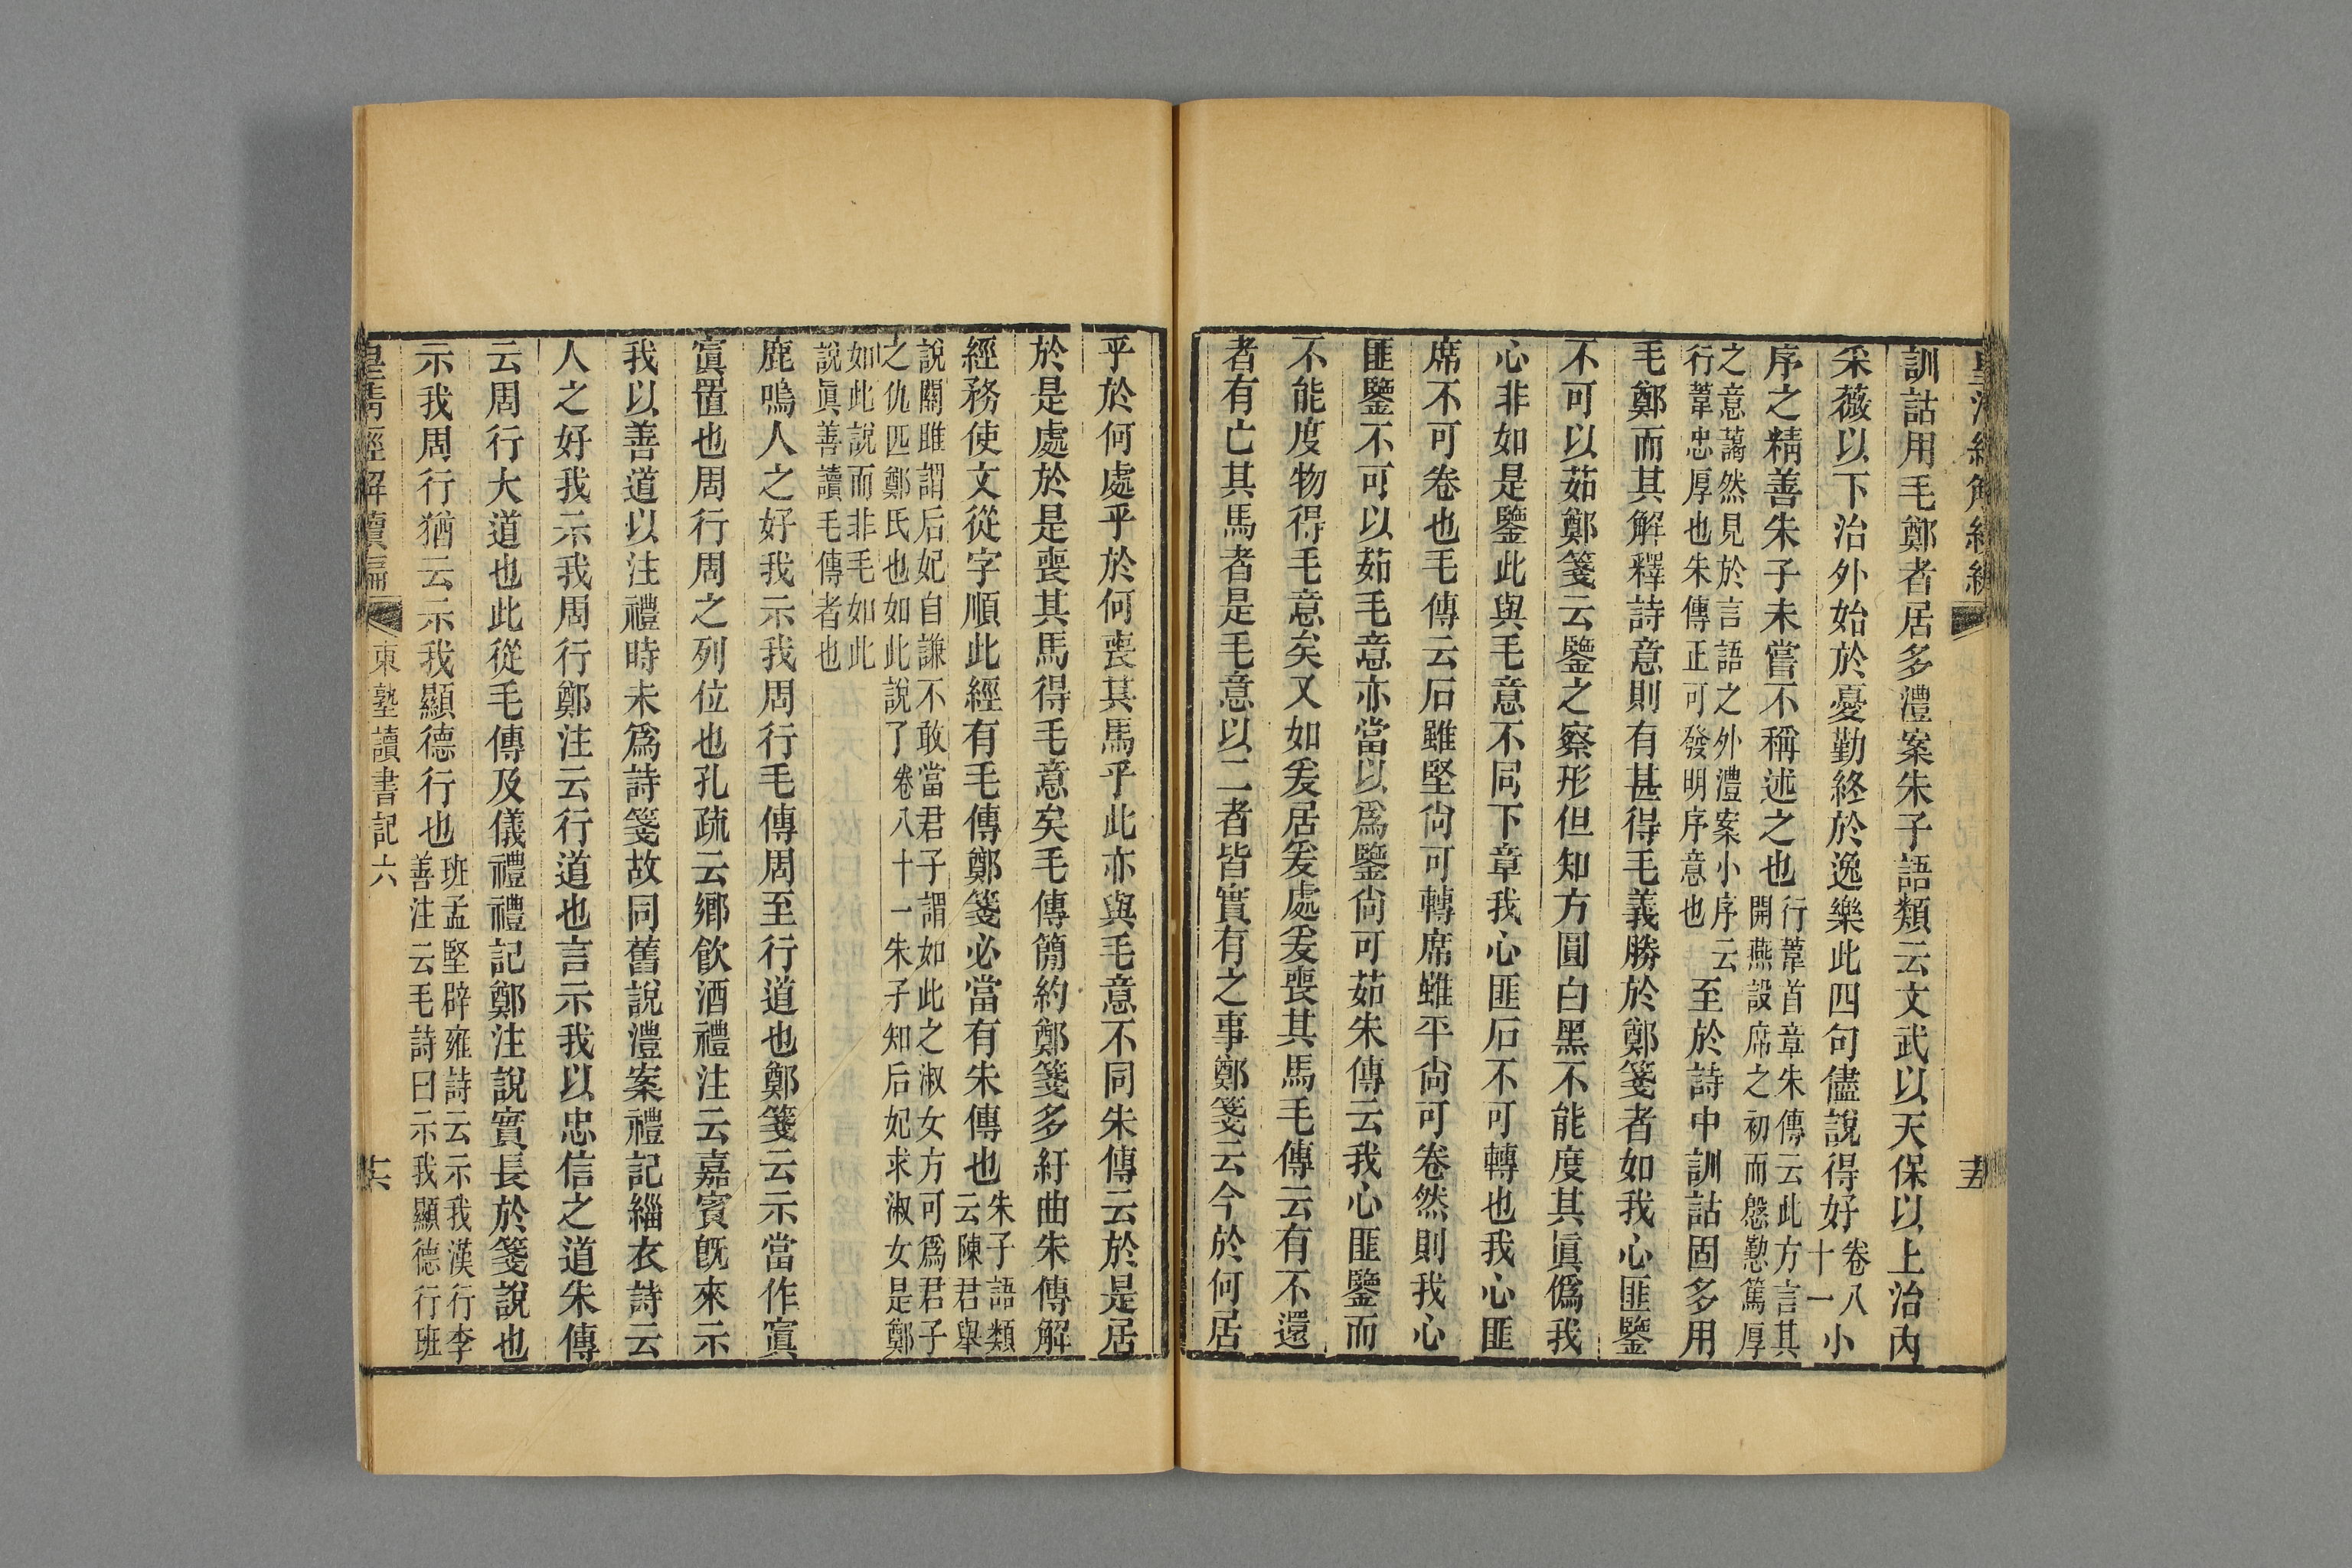 訓詁用毛鄭者居多澧案朱子語類云文武以天保以上治內
采薇以下治外始於憂勤終於逸樂此四句儘說得好卷八十一小
序之精善朱子未嘗不稱述之也行葦首章朱傳云此方言其開燕設席之初而慇懃篤厚
之意藹然見於言語之外澧案小序云行葦忠厚也朱傳正可發明序意也至於詩中訓詁固多用
毛鄭而其解釋詩意則有甚得毛義勝於鄭箋者如我心匪鑒
不可以茹鄭箋云鑒之察形但知方圓白黑不能度其眞僞我
心非如是鑒此與毛意不同下章我心匪石不可轉也我心匪
席不可卷也毛傳云石雖堅尙可轉席雖平尙可卷然則我心
匪鑒不可以茹毛意亦當以爲鑒尙可茹朱傳云我心匪鑒而
不能度物得毛意矣又如爰居爰處爰喪其馬毛傳云有不還
者有亡其馬者是毛意以二者皆實有之事鄭箋云今於何居
乎於何處乎於何喪其馬乎此亦與毛意不同朱傳云於是居
於是處於是喪其馬得毛意矣毛傳簡約鄭箋多紆曲朱傳解
經務使文從字順此經有毛傳鄭箋必當有朱傳也朱子語類云陳君舉
說關雎謂后妃自謙不敢當君子謂如此之淑女方可爲君子
之仇匹鄭氏也如此說了卷八十一朱子知后妃求淑女是鄭
如此說而非毛如此
說眞善讀毛傳者也
鹿鳴人之好我示我周行毛傳周至行道也鄭箋云示當作寘
寘置也周行周之列位也孔疏云鄉飮酒禮注云嘉賓旣來示
我以善道以注禮時未爲詩箋故同舊說澧案禮記緇衣詩云
人之好我示我周行鄭注云行道也言示我以忠信之道朱傳
云周行大道也此從毛傳及儀禮禮記鄭注說實長於箋說也
示我周行猶云示我顯德行也班孟堅辟雍詩云示我漢行李善注云毛詩曰示我顯德行班
皇淸經解續編
東塾讀書記六
十六